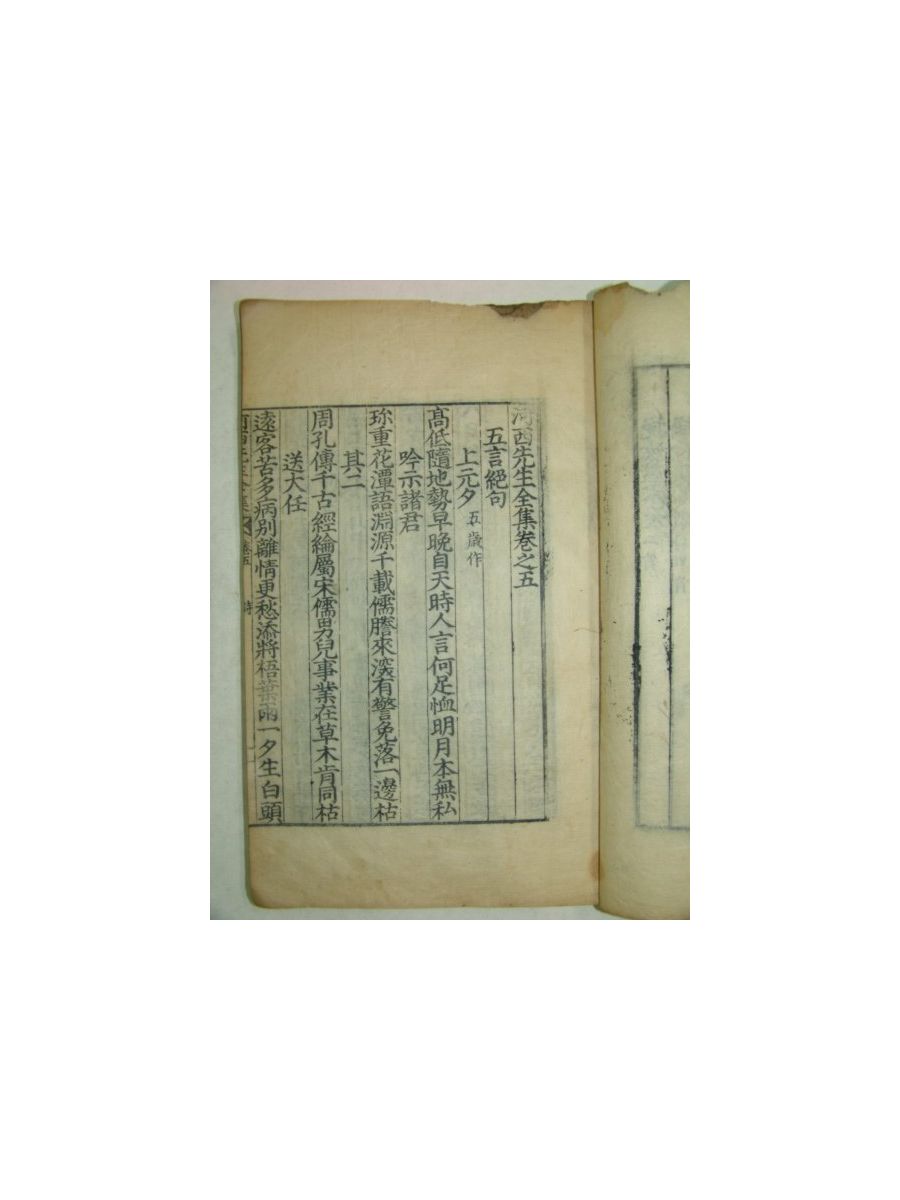 河西先生全集卷之五
五言絕句
上元夕 五歲作
高低隨地勢早晚自天時人言何足恤明月本無私
吟示諸君
珎重花潭語淵源千載儒謄來深有警免落一邊枯
其二
周孔傳千古經綸屬宋儒男兒事業在草木肯同枯
送大任
遠客苦多病別離情更愁添將梧葉雨一夕生白頭
河西先生全集 卷五 詩